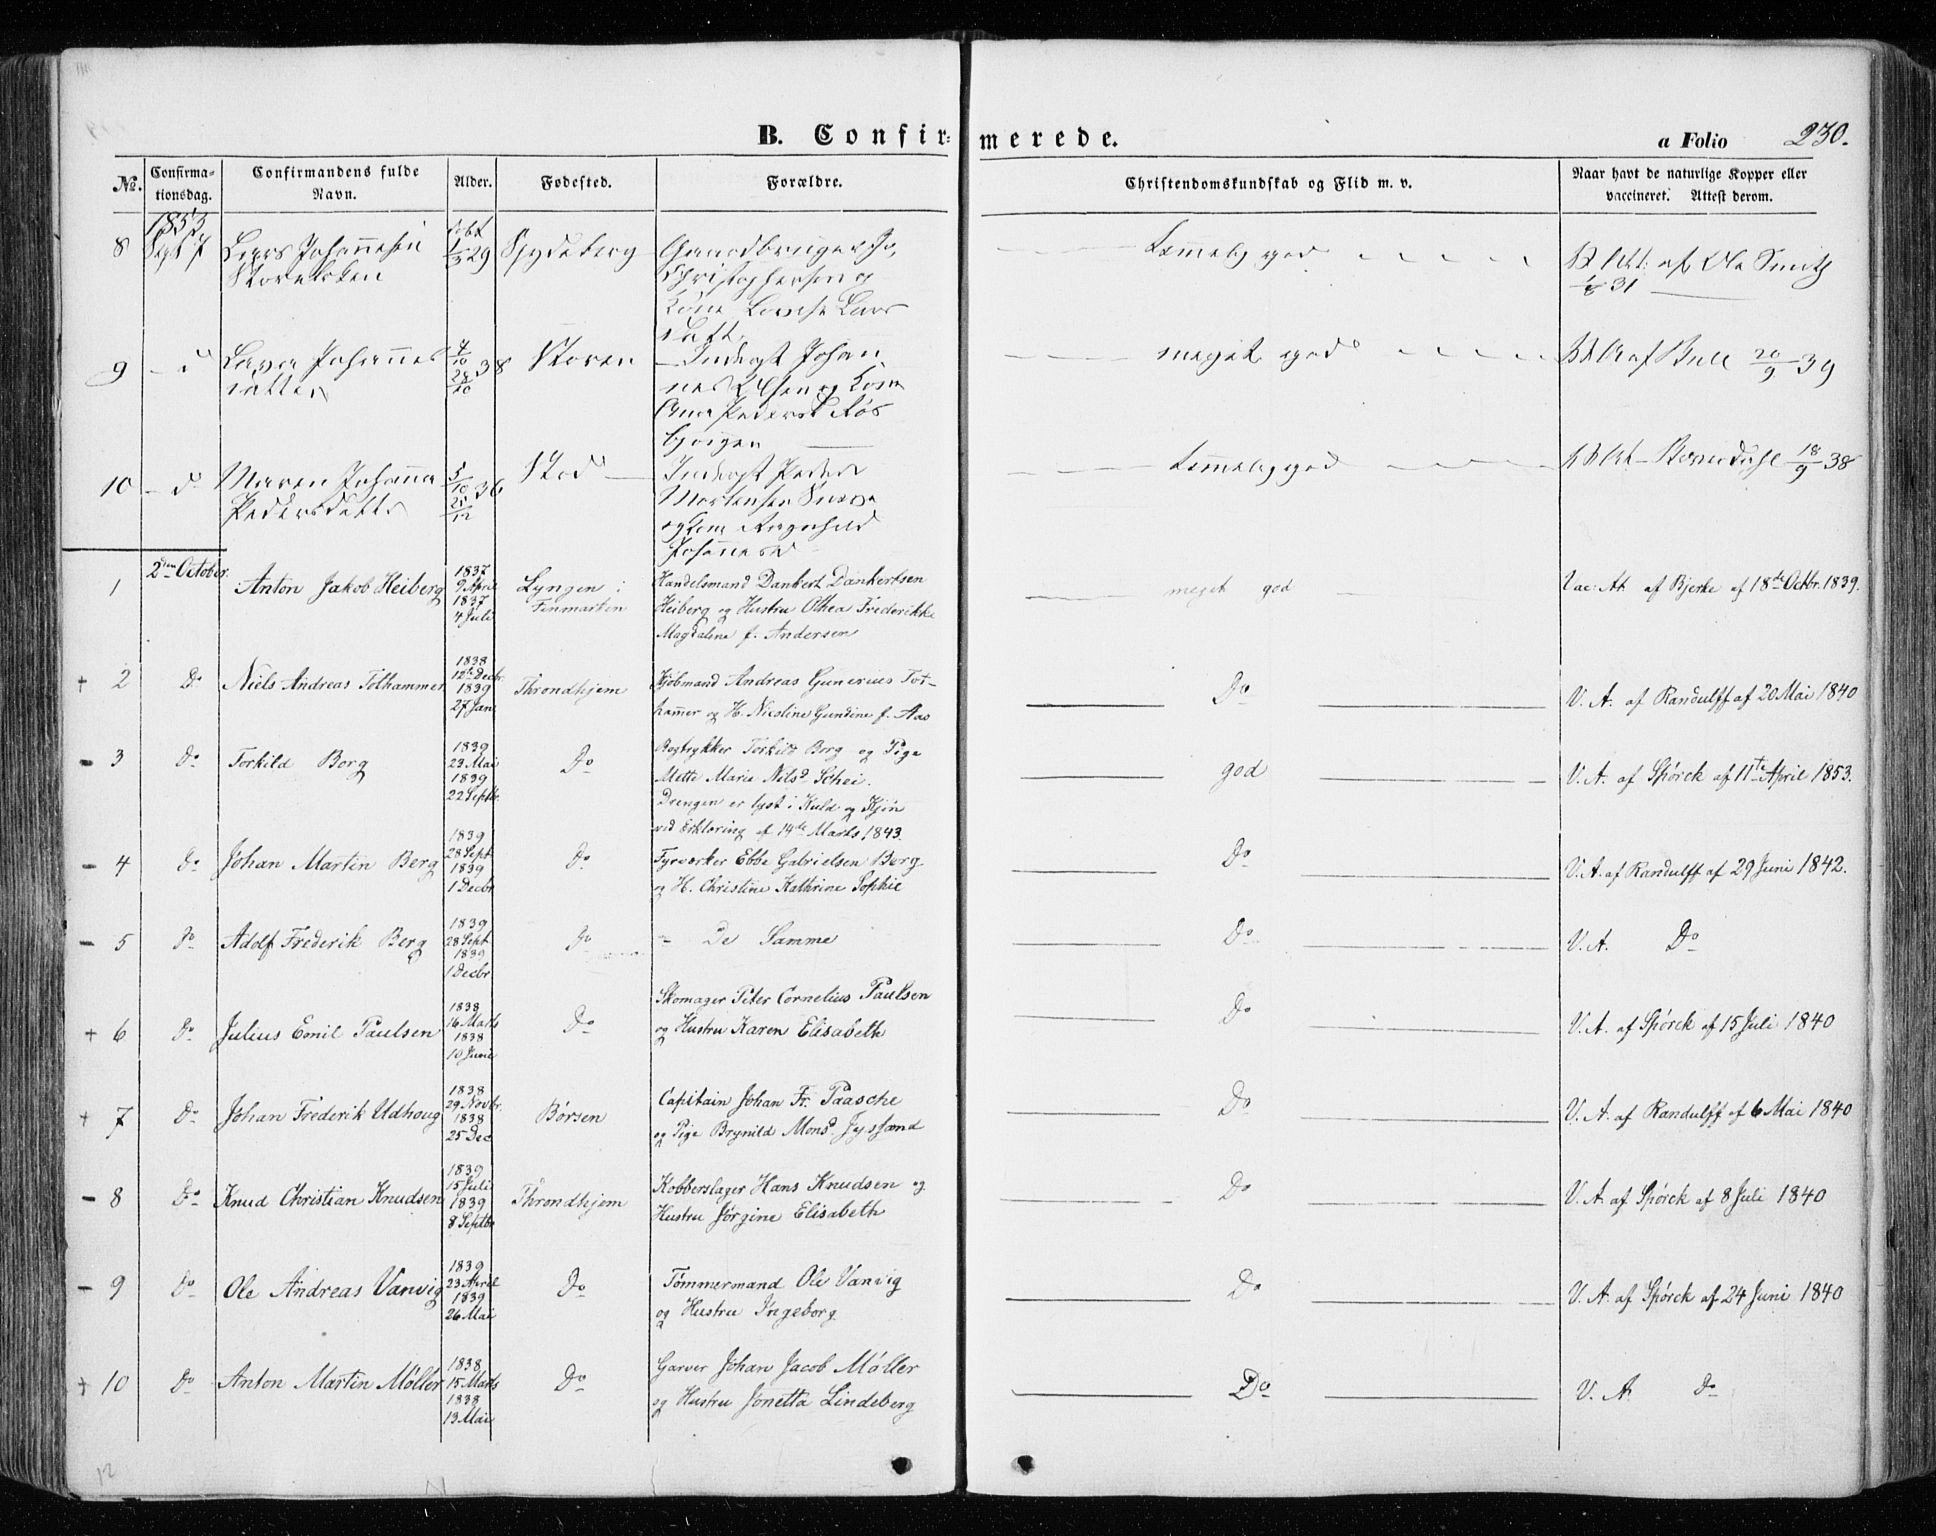 B. Confirmerede.
a Folio 230.
No. Confirmationsdag. Confirmandens fulde Navn. Alder. Fødested. Forældre. Christendomskundskab og Flid m. v. Naar havt de naturlige Kopper eller vaccineret. Attest derom.
1853
8 Lars Johannesen 29 Gaardbruger
Christophersen og
Kone Lovise Lars
temmelig god af Ole Smith
31
9 Johannes 4/10 38 Støren Indergst Johan
datter 28/10 nes Olsen og Kone
Ane Peders
meget god af Bull 20/9 39
10 Maren Johanna 5/10 36 Stod Indergst Peder
Pedersdatter 25/12 Mortensen
og Kone Ragnhild
Johannesd
temmelig god 18/9 38
2den October.
1 Anton Jakob Heiberg 1837 9 April 1837 4 Juli Lyngen i Finmarken
Handelsmand Dankert Dankertsen
Heiberg og Hustru Othea Frederikke
Magdaline f. Andersen
meget god Vac. At. af Bjerke af 18de Octbr. 1839.
+ 2 Do Niels Andreas Tolhammer 1838 12te Decbr 1839 27 Jan. Throndhjem
Kjøbmand Andreas Gunerius Tol-
hammer og H. Nicoline Gundine f. Aas
Do V. A. af Randulff af 20 Mai 1840
- 3 Do Torkild Borg 1839 23 Mai 1839 22 Septbr. Do
Bogtrykker Torkild Borg og Pige
Mette Marie Nilsd. Schei.
Drengen er lyst i Kuld og Kjøn
ved Erklæring af 14de Marts 1843.
god V. A. af Spørck af 11te April 1853.
- 4 Do Johan Martin Berg 1839 28 Sept 1839 1 Decbr Do
Fyrverker Ebbe Gabrielsen Berg
og H. Christine Kathrine Sophie
Do V. A. af Randulff af 29 Juni 1842.
- 5 Do Adolf Frederik Berg 1839 28 Sept 1839 1 Decbr Do
De Samme
Do V. A. Do
+ 6 Do Julius Emil Paulsen 1838 16 Marts 1838 10 Juni Do
Skomager Peter Cornelius Paulsen
og Hustru Karen Elisabeth
Do V. A. af Spørck af 15 Juli 1840
+ 7 Do Johan Frederik Udhoug 1838 29 Novbr. 1838 25 Dec Børsen
Capitain Johan Fr. Paasche
og Pige Brynild Monsd.
Do V. A. af Randulff af 6 Mai 1840
- 8 Do Knud Christian Knudsen 1839 15 Juli 1839 8 Septbr Throndhjem
Kobberslager Hans Knudsen og
Hustru Jørgine Elisabeth
Do V. A. af Spørck af 8 Juli 1840
- 9 Do Ole Andreas Vanvig 1839 23 April 1839 26 Mai Do
Tømmermand Ole Vanvig
og Hustru Ingeborg
Do V. A. af Spørck af 24 Juni 1840
+ 10 Do Anton Martin Møller 1838 15 Marts 1838 13 Mai Do
Garver Johan Jacob Møller
og Hustru Jonetta Lindeberg
Do V. A. Do
12